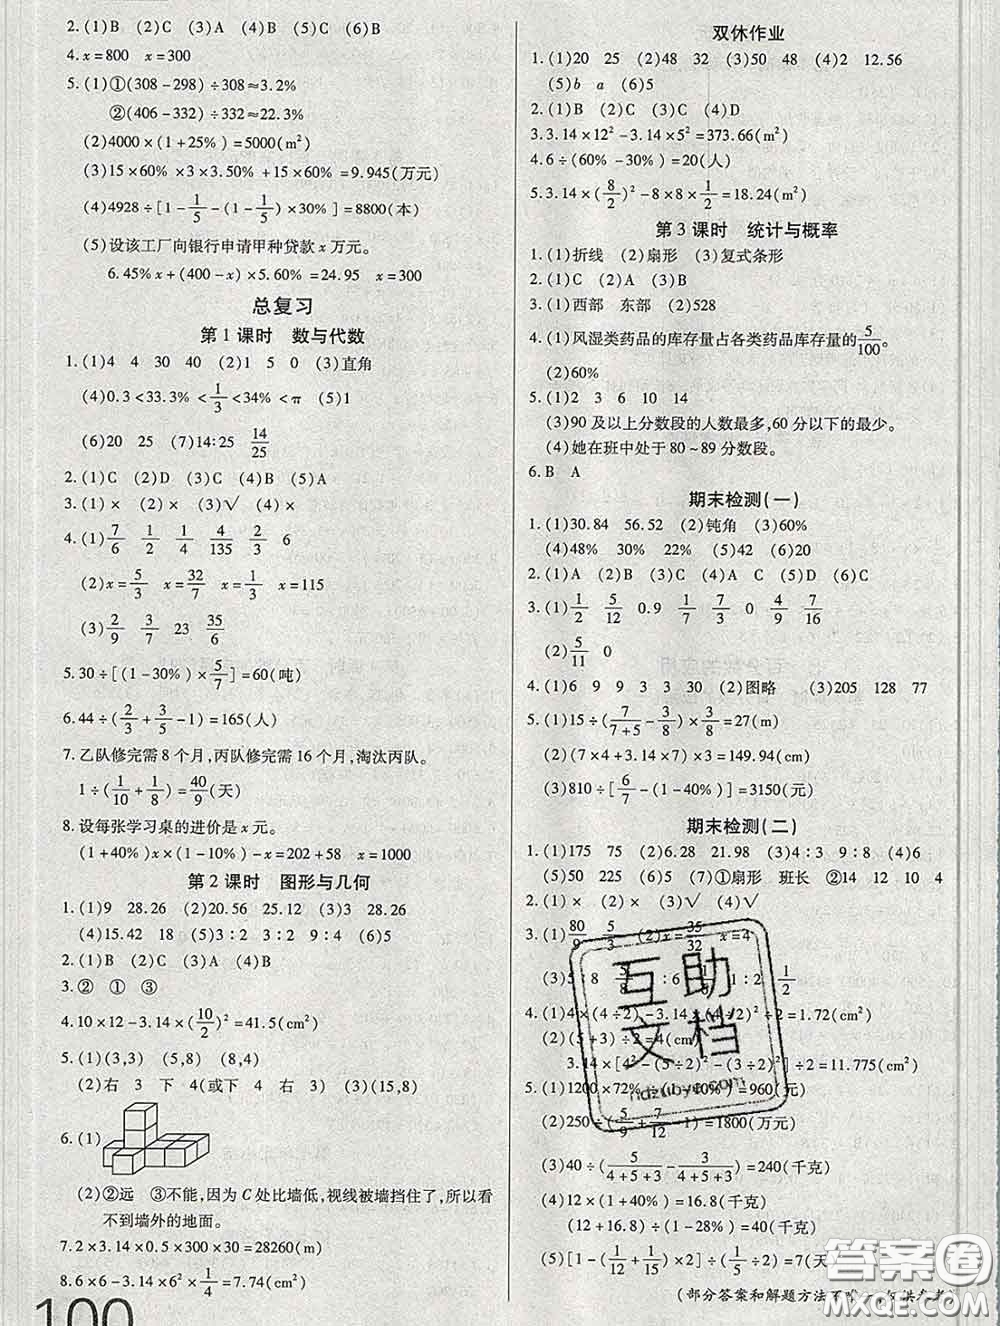 2.(1)B (2)C (3)A (4)C (5)C (6)B
4.x=800 x=300
5.(1)①(308-298)÷308≈3.2%
②(406-332)÷332≈22.3%
(2)4000×(1+25%)=5000(m²)
(3)15×60%×3×3.50%+15×60%=9.945(万元)
(4)4928÷[1-1/5-(1-1/5)×30%]=8800(本)
(5)设该工厂向银行申请甲种贷款x万元。
6.45%x+(400-x)×5.60%=24.95 x=300
总复习
第1课时 数与代数
1.(1)4 4 30 40 (2)1 5 0 (3)直角
(4)0.3<33.3%<1/3<34%<π (5)1
(6)20 25 (7)14∶25 14/25
2.(1)C (2)D (3)C (4)B (5)A
3.(1)× (2)× (3)√ (4)×
4.(1)7/6 1/2 1/4 4/135 2/3 6
(2)x=5/3 x=32/7 x=1/3 x=115
(3)2/9 3/7 23 35/6
5.30÷[(1-30%)×5/7]=60(吨)
6.44÷(2/3+3/5-1)=165(人)
7.乙队修完需8个月,丙队修完需16个月,淘汰丙队。
1÷(1/10+1/8)=40/9(天)
8.设每张学习桌的进价是x元。
(1+40%)x×(1-10%)-x=202+58 x=1000
第2课时 图形与几何
1.(1)9 28.26 (2)20.56 25.12 (3)3 28.26
(4)15.42 18 (5)3∶2 3∶2 9∶4 (6)5
2.(1)B (2)C (3)A (4)B
3.② ① ③
4.10×12-3.14×(10/2)²=41.5(cm²)
5.(1)(3,3) (5,8) (8,4)
(2)右 3 下 4(或下 4 右 3) (3)(15,8)
6.(1)
(2)②远 ③不能,因为C处比墙低,视线被墙挡住了,所以看
不到墙外的地面。
7.2×3.14×0.5×300×30=28260(m)
8.6×6-3.14×6²×1/4=7.74(cm²)
100
双休作业
1.(1)20 25 (2)48 32 (3)50 48 (4)2 12.56
(5)b a (6)5
2.(1)B (2)C (3)C (4)D
3.3.14×12²-3.14×5²=373.66(m²)
4.6÷(60%-30%)=20(人)
5.3.14×(8/2)²-8×8×1/2=18.24(m²)
第3课时 统计与概率
1.(1)折线 (2)扇形 (3)复式条形
2.(1)C (2)A (3)B
3.(1)西部 东部 (2)528
4.(1)风湿类药品的库存量占各类药品库存量的5/100。
(2)60%
5.(1)2 3 6 10 14
(3)90及以上分数段的人数最多,60分以下的最少。
(4)她在班中处于80~89分数段。
6.B A
期末检测(一)
1.(1)30.84 56.52 (2)钝角 (3)60%
(4)48% 30% 22% (5)42 (6)20
2.(1)A (2)B (3)C (4)A C (5)D (6)C
3.(1)1/2 5/12 0.9 1/7 7/3 0 4/7 9/16
(2)5/11 0
4.(1)6 9 9 3 3 30 (2)图略 (3)205 128 77
5.(1)15÷(7/(7+5)-3/8)×3/8=27(m)
(2)(7×4+3.14×7)×3=149.94(cm)
(3)810÷[6/7-(1-40%)]=3150(元)
期末检测(二)
1.(1)175 75 (2)6.28 21.98 (3)4∶3 9∶8 (4)6
(5)50 225 (6)5 (7)①扇形 班长 ②14 12 10 4
2.(1)× (2)× (3)√ (4)√
3.(1)80/9 5/3 (2)x=35/32 x=4
(3)5∶8 5/8 ∶6 1∶2 1/2
4.(1)4×(4÷2)-3.14×(4÷2)²÷2=1.72(cm²)
(2)(5+3)÷2=4(cm)
3.14×[4²-(5÷2)²-(3÷2)²]÷2=11.775(cm²)
5.(1)1200×72%÷(1-10%)=960(元)
(2)250÷(5/9+7/12-1)=1800(万元)
(3)40÷(5/(4+5+3)-3/(4+5+3))=240(千克)
(4)12×(1+40%)=16.8(千克)
(12+16.8)÷(1-28%)=40(千克)
(5)[1-(1/12+1/15)×2]÷(1/5÷2)=7(天
(部分答案和解题方法不
互助
文档
hdzuoye.com
答案圈
MXQE.COM